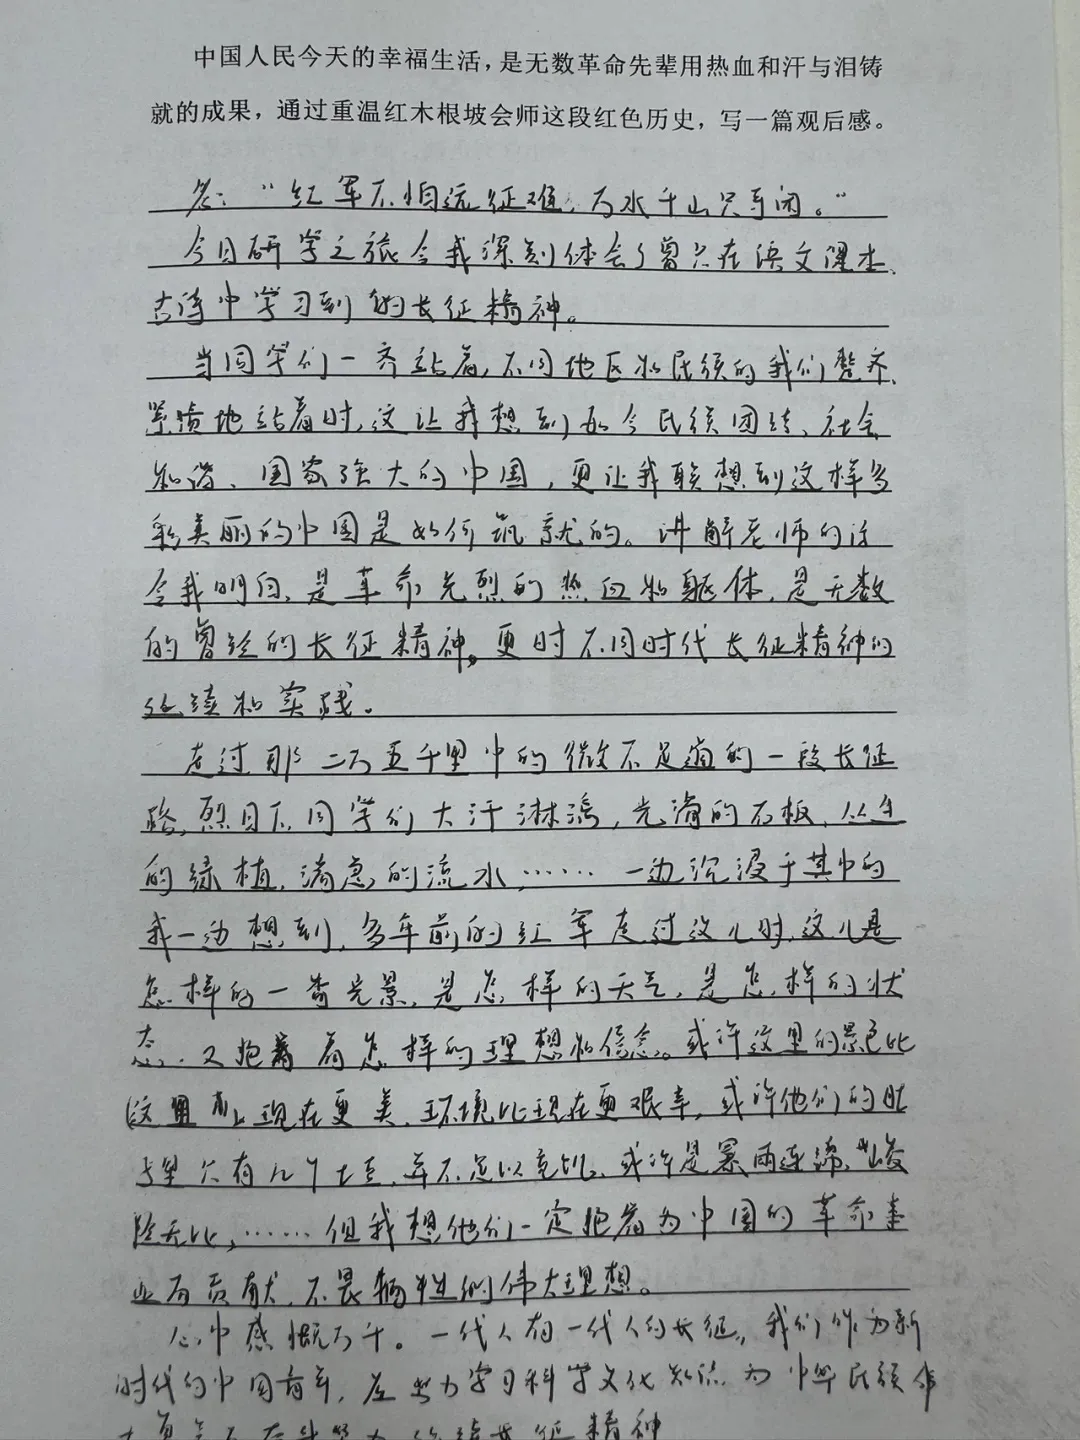 中国人民今天的幸福生活，是无数革命先辈用热血和汗与泪铸
就的成果，通过重温红木根坡会师这段红色历史，写一篇观后感。
答：“红军不怕远征难，万水千山只等闲。”
今日研学之旅令我深刻体会了曾只在语文课本、
古诗中学习到的长征精神。
当同学们一齐站着，不同地区和民族的我们整齐、
地站着时，这让我想到如今民族团结、社会
和谐、国家强大的中国，更让我联想到这样多
彩美丽的中国是如何筑就的。讲解老师的话
令我明白，是革命先烈的热血和躯体，是无数
的曾经的长征精神，更时不同时代长征精神的
延续和实践。
走过那二万五千里中的微不足道的一段长征
路，烈日下同学们大汗淋漓，光滑的石板，
的绿植，湍急的流水，……一边沉浸于其中的
我一边想到，多年前的红军走过这儿时，这儿是
怎样的一番光景，是怎样的天气，是怎样的状
态，又抱着怎样的理想和信念。或许这里的景色比
现在更美，环境比现在更艰辛，或许他们的肚
子里只有几个土豆，并不足以充饥，或许是暴雨连绵，山峻
险无比，……但我想他们一定抱着为中国的革命事
业有贡献，不畏牺牲的伟大理想。
心中感慨万千。一代人有一代人的长征，我们作为新
时代的中国青年，应努力学习科学文化知识，为中华民族伟
长征精神